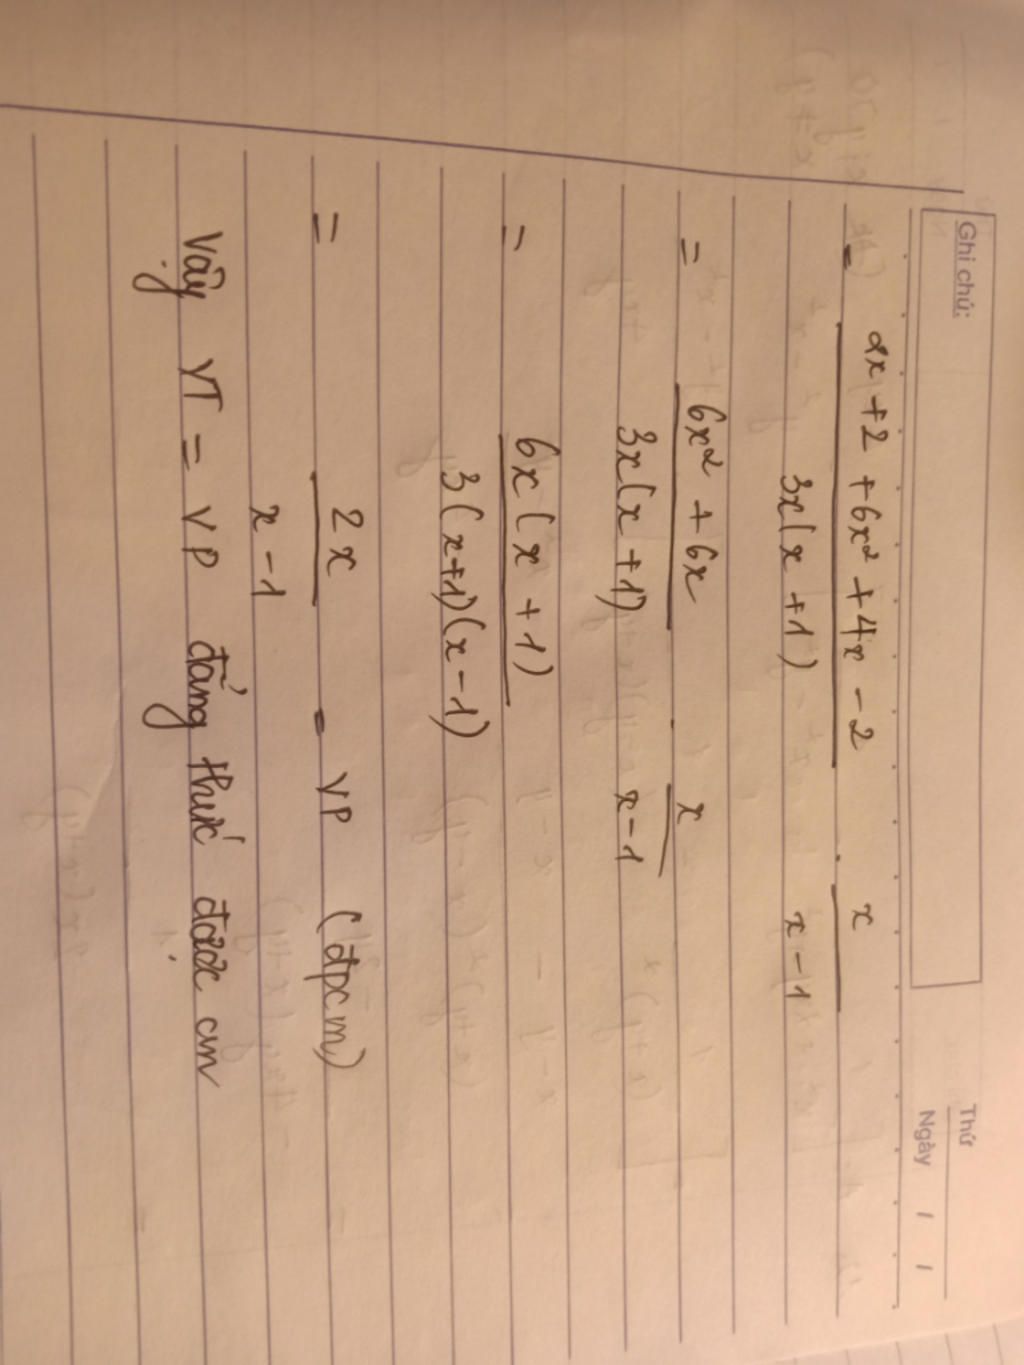 Ghi chú:
Thứ
Ngày / /
= 2x + 2 + 6x² + 4x - 2 / 3x(x + 1) . x / x - 1
= 6x² + 6x / 3x(x + 1) . x / x - 1
= 6x(x + 1) / 3(x+1)(x - 1)
= 2x / x - 1 = VP (đpcm)
Vậy VT = VP đẳng thức được cm